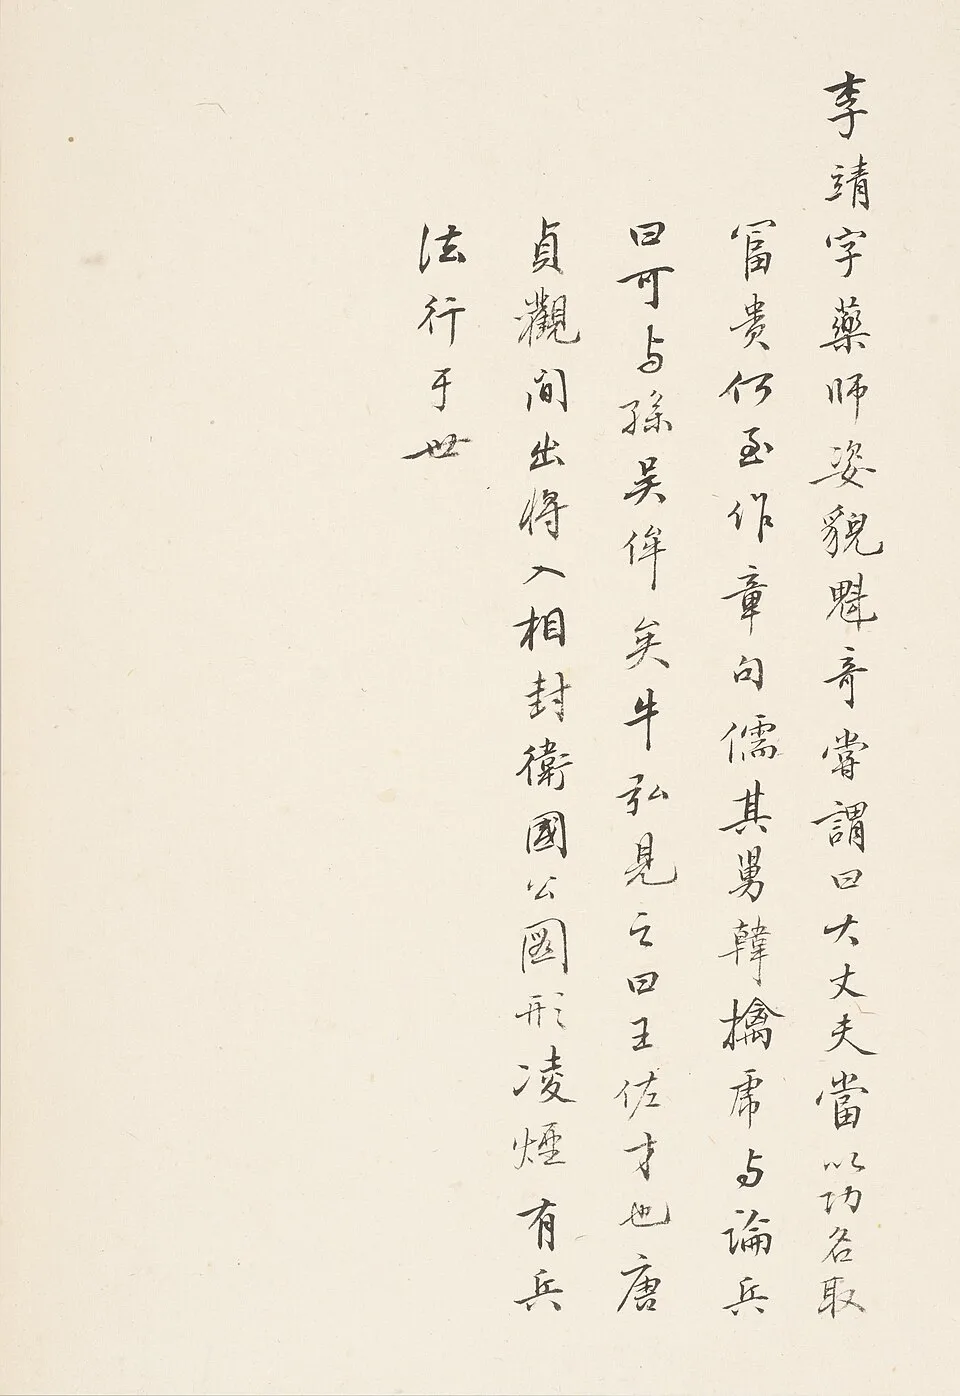 李靖字藥師姿貌魁奇嘗謂曰大丈夫當以功名取
富貴何至作章句儒其舅韓擒虎与論兵
曰可与孫吳侔矣牛弘見之曰王佐才也唐
貞觀間出將入相封衛國公圖形凌煙有兵
法行于世